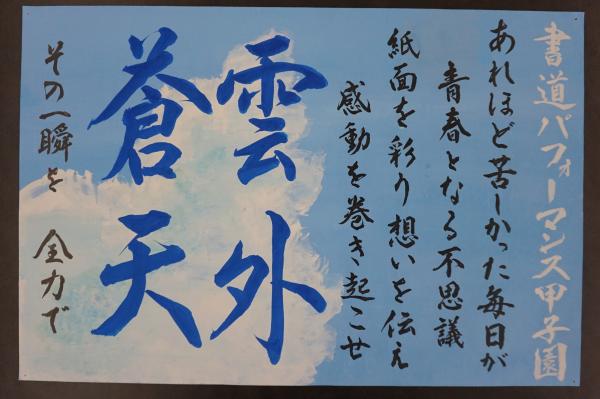 書道パフォーマンス甲子園
あれほど苦しかった毎日が
青春となる不思議
紙面を彩り想いを伝え
感動を巻き起こせ
雲外
蒼天
その一瞬を
全力で